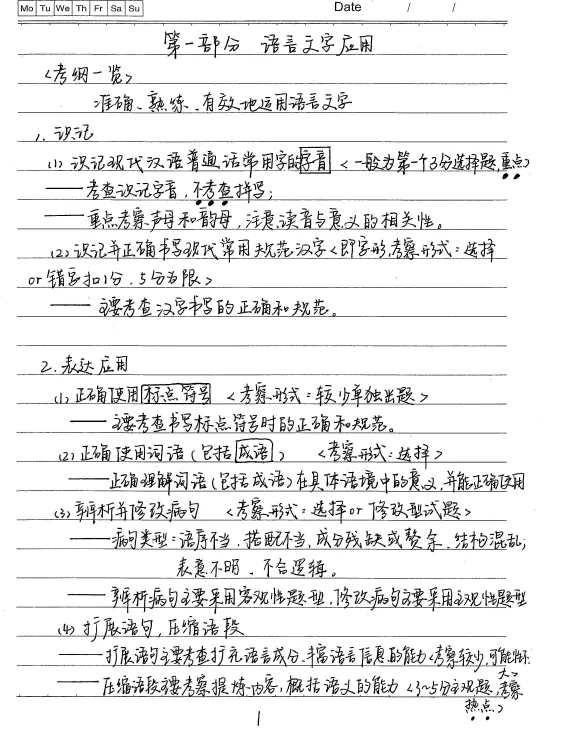 Mo Tu We Th Fr Sa Su
Date / /
第一部分 语言文字应用
<考纲一览>
准确、熟练、有效地运用语言文字
1. 识记
(1) 识记现代汉语普通话常用字的字音 <一般为第一个3分选择题,重点>
——考查识记字音,不考查拼写;
——重点考察声母和韵母,注意读音与意义的相关性。
(2) 识记并正确书写现代常用规范汉字<即字形,考察形式:选择
or 错字扣1分,5分为限>
——主要考查汉字书写的正确和规范。
2. 表达应用
(1) 正确使用标点符号 <考察形式:较少单独出题>
——主要考查书写标点符号时的正确和规范。
(2) 正确使用词语(包括成语) <考察形式:选择>
——正确理解词语(包括成语)在具体语境中的意义,并能正确使用
(3) 辨析并修改病句 <考察形式:选择or 修改型试题>
——病句类型:语序不当、搭配不当,成分残缺或赘余、结构混乱,
表意不明、不合逻辑。
——辨析病句主要采用客观性题型,修改病句主要采用主观性题型
(4) 扩展语句,压缩语段
——扩展语句主要考查扩充语言成分、丰富语言信息的能力<考察较少,可能性不
大>
——压缩语段主要考察提炼内容,概括语义的能力 <3~5分主观题,考察
热点>
1